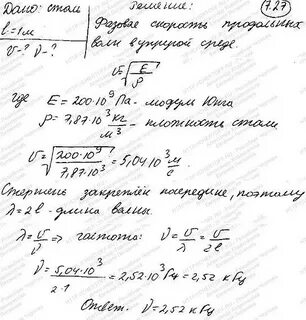 Дано: сталь
l=1м
υ-? ν-?
Решение:
7.27
Фазовая скорость продольных
волн в упругой среде.
υ=√(E/ρ)
где E=200·10⁹Па - модуль Юнга
ρ=7,87·10³ кг/м³ - плотность стали
υ=√(200·10⁹/7,87·10³)=5,04·10³ м/с.
Стержень закреплён посередине, поэтому
λ=2l - длина волны.
λ=υ/ν ⇒ частота: ν=υ/λ=υ/2l
ν=5,04·10³/2·1=2,52·10³Гц=2,52 кГц
Ответ: ν=2,52 кГц